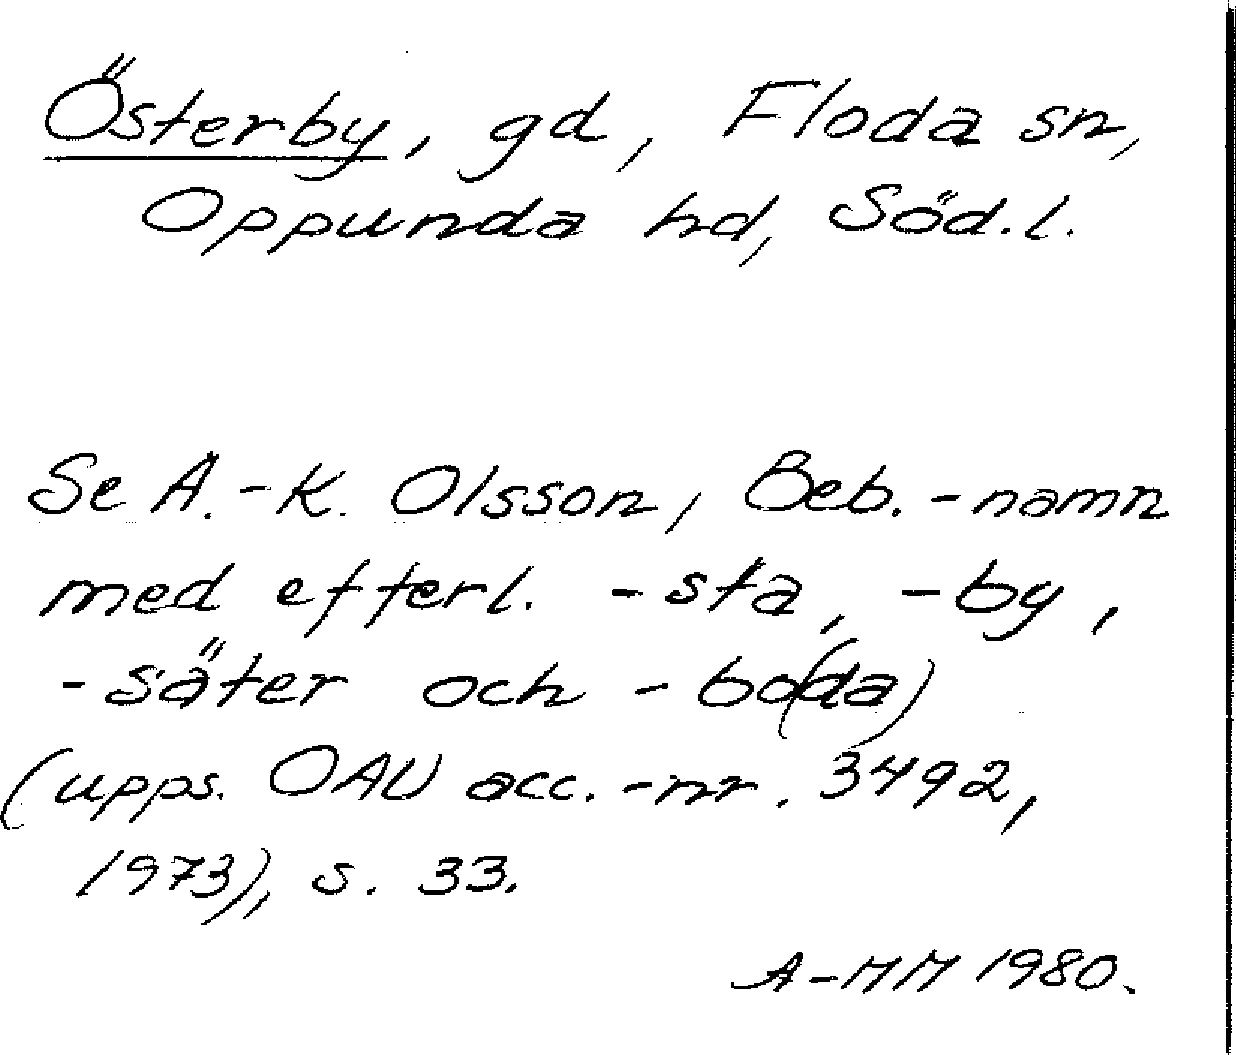 Österby, gd, Floda sn,
Oppunda hd, Söd.l.
Se A.-K. Olsson, Beb.-namn
med efterl. -sta, -by,
-säter och -bo(da)
(upps. OAU acc.-nr. 3492,
1973), s. 33.
A-MM 1980.